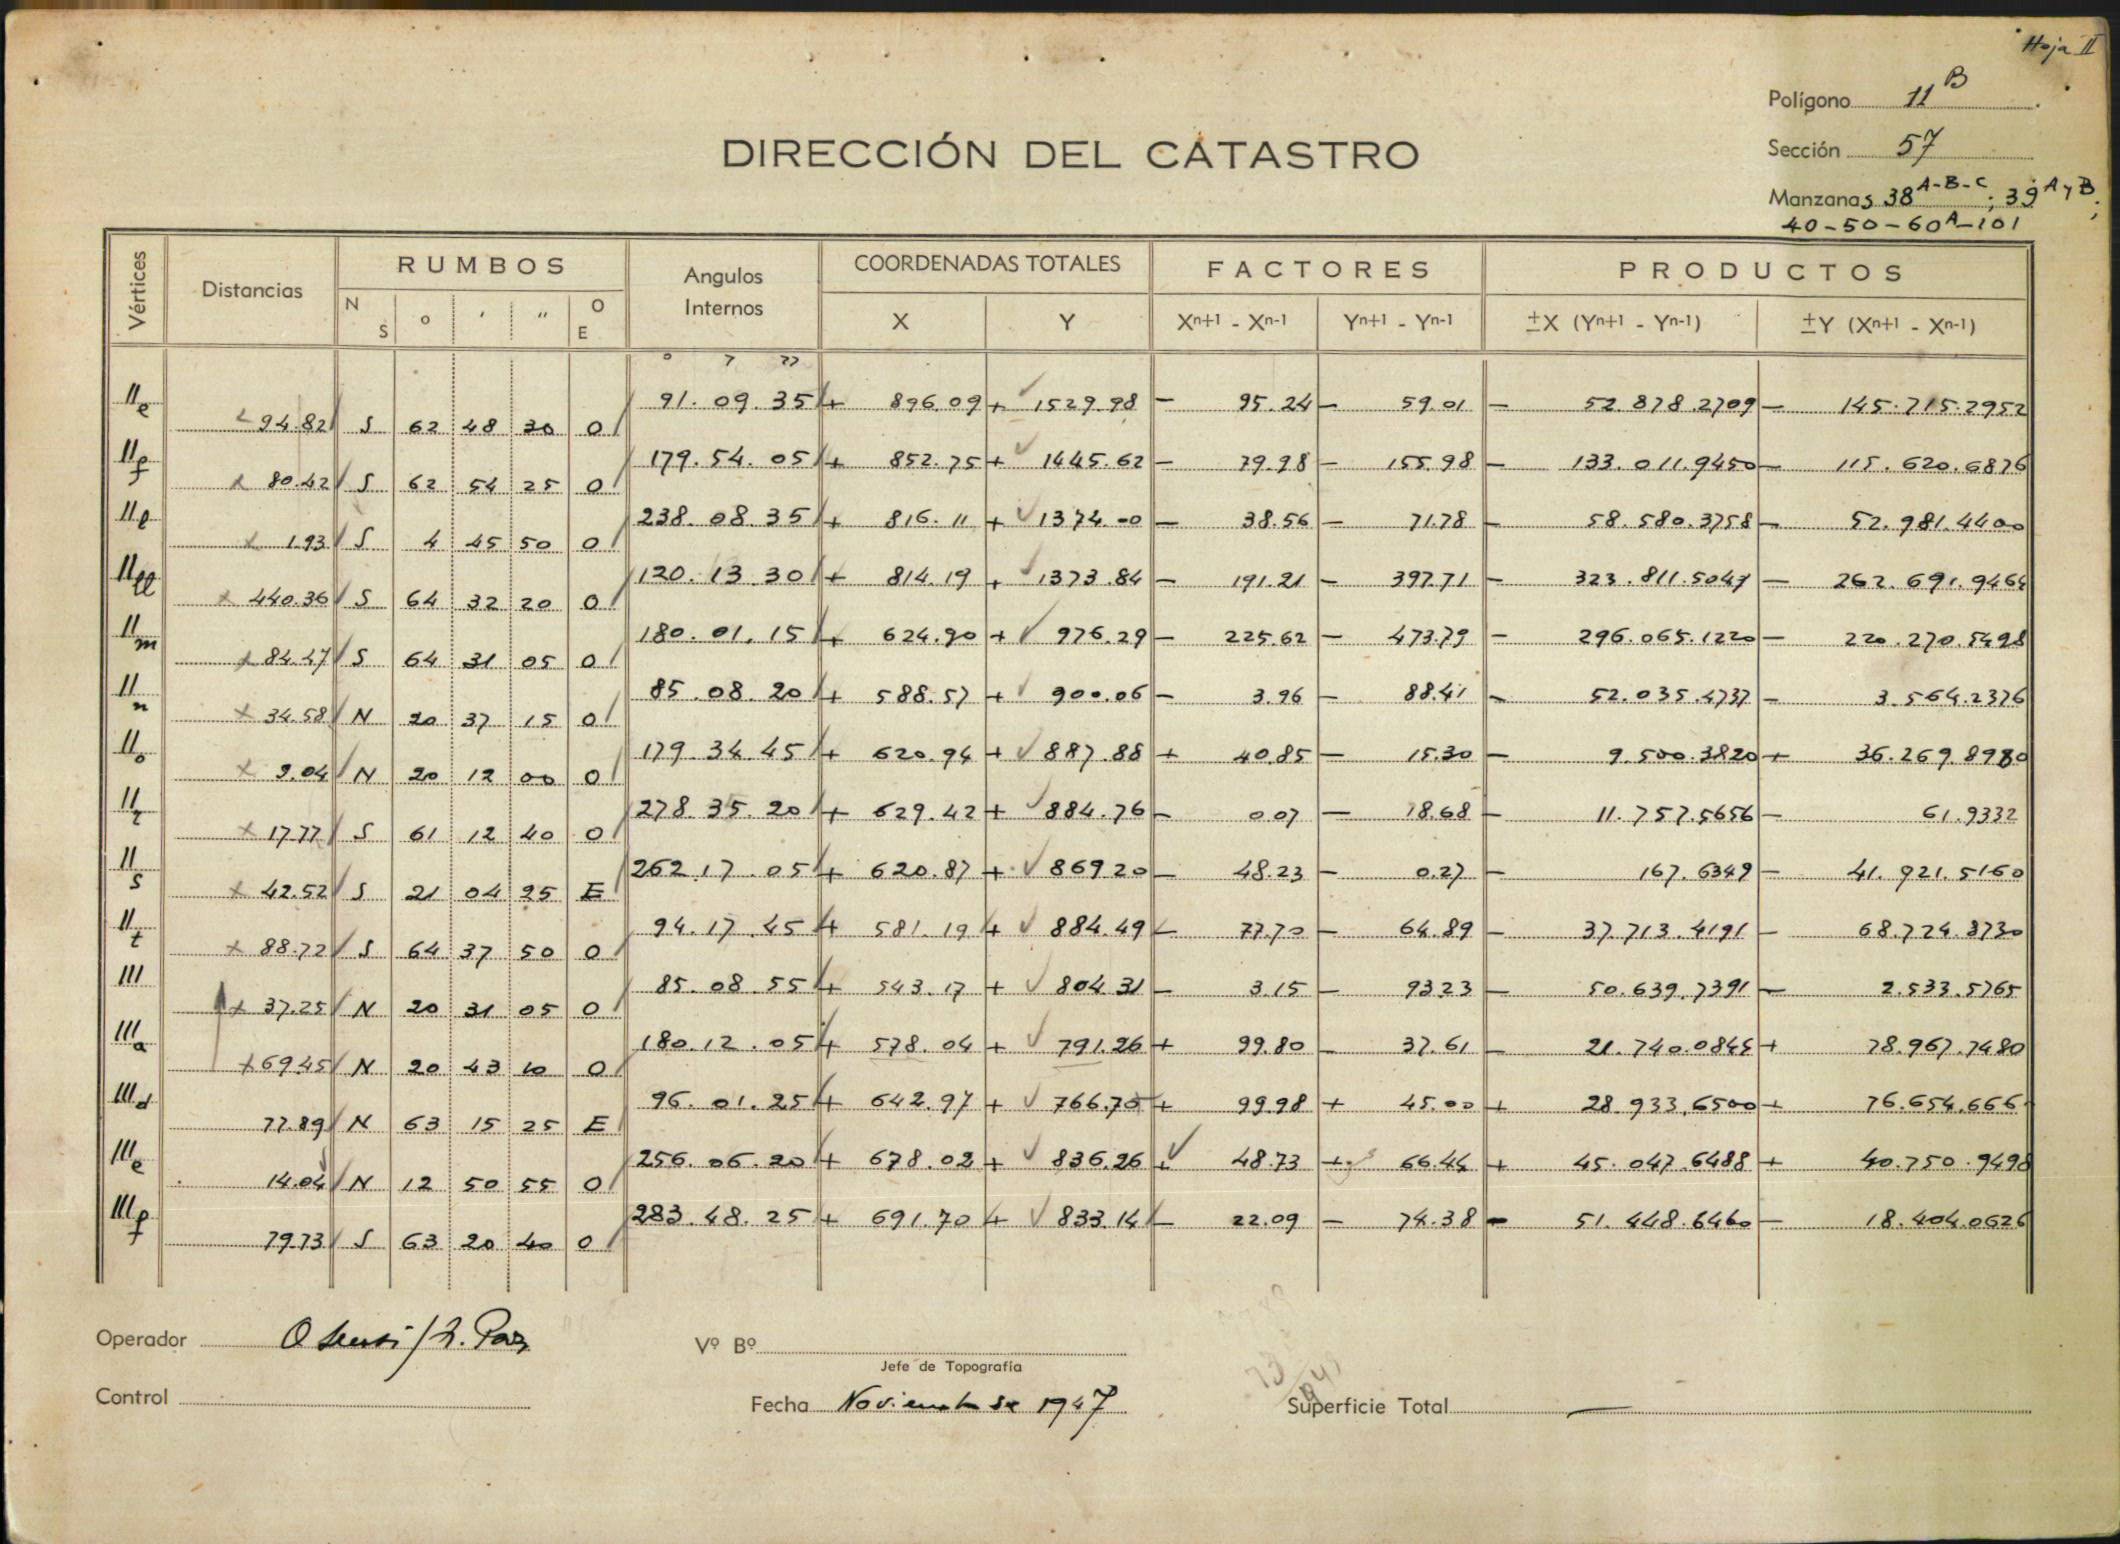 Hoja II
Polígono 11 B
DIRECCIÓN DEL CATASTRO
Sección 57
Manzanas 38 A-B-C ; 39 A y B ;
40-50-60 A-101
Vértices Distancias RUMBOS Angulos Internos COORDENADAS TOTALES FACTORES PRODUCTOS
N S ° ' " O E X Y Xn+1 - Xn-1 Yn+1 - Yn-1 ±X (Yn+1 - Yn-1) ±Y (Xn+1 - Xn-1)
° ' "
IIe 91. 09. 35 + 896.09 + 1529.98 - 95.24 - 59.01 - 52.878.2709 - 145.715.2952
94.82 S 62 48 30 O
IIf 179. 54. 05 + 852.75 + 1445.62 - 79.98 - 155.98 - 133.011.9450 - 115.620.6876
80.42 S 62 54 25 O
IIl 238. 08. 35 + 816.11 + 1374.00 - 38.56 - 71.78 - 58.580.3758 - 52.981.4400
1.93 S 4 45 50 O
IIll 120. 13. 30 + 814.19 + 1373.84 - 191.21 - 397.71 - 323.811.5049 - 262.691.9464
440.36 S 64 32 20 O
IIm 180. 01. 15 + 624.90 + 976.29 - 225.62 - 473.79 - 296.065.1220 - 220.270.5498
84.47 S 64 31 05 O
IIn 85. 08. 20 + 588.57 + 900.06 - 3.96 - 88.41 - 52.035.4737 - 3.564.2376
34.58 N 20 37 15 O
IIo 179. 34. 45 + 620.94 + 887.88 + 40.85 - 15.30 - 9.500.3820 + 36.269.8980
9.04 N 20 12 00 O
IIr 278. 35. 20 + 629.42 + 884.76 - 0.07 - 18.68 - 11.757.5656 - 61.9332
17.77 S 61 12 40 O
IIs 262. 17. 05 + 620.87 + 869.20 - 48.23 - 0.27 - 167.6349 - 41.921.5160
42.52 S 21 04 25 E
IIt 94. 17. 45 + 581.19 + 884.49 - 77.70 - 64.89 - 37.713.4191 - 68.724.8730
88.72 S 64 37 50 O
III 85. 08. 55 + 543.17 + 804.31 - 3.15 - 93.23 - 50.639.7391 - 2.533.5765
37.25 N 20 31 05 O
IIIa 180. 12. 05 + 578.04 + 791.26 + 99.80 - 37.61 - 21.740.0845 + 78.967.7480
69.45 N 20 43 10 O
IIId 96. 01. 25 + 642.97 + 766.70 + 99.98 + 45.00 + 28.933.6500 + 76.654.666
77.89 N 63 15 25 E
IIIe 256. 06. 20 + 678.02 + 836.26 + 48.73 + 66.44 + 45.047.6488 + 40.750.9498
14.04 N 12 50 55 O
IIIf 283. 48. 25 + 691.70 + 833.14 - 22.09 - 74.38 - 51.448.6460 - 18.404.0626
79.73 S 63 20 40 O
Operador
Vº Bº
Jefe de Topografía
Control
Fecha Noviembre 1947
Superficie Total —